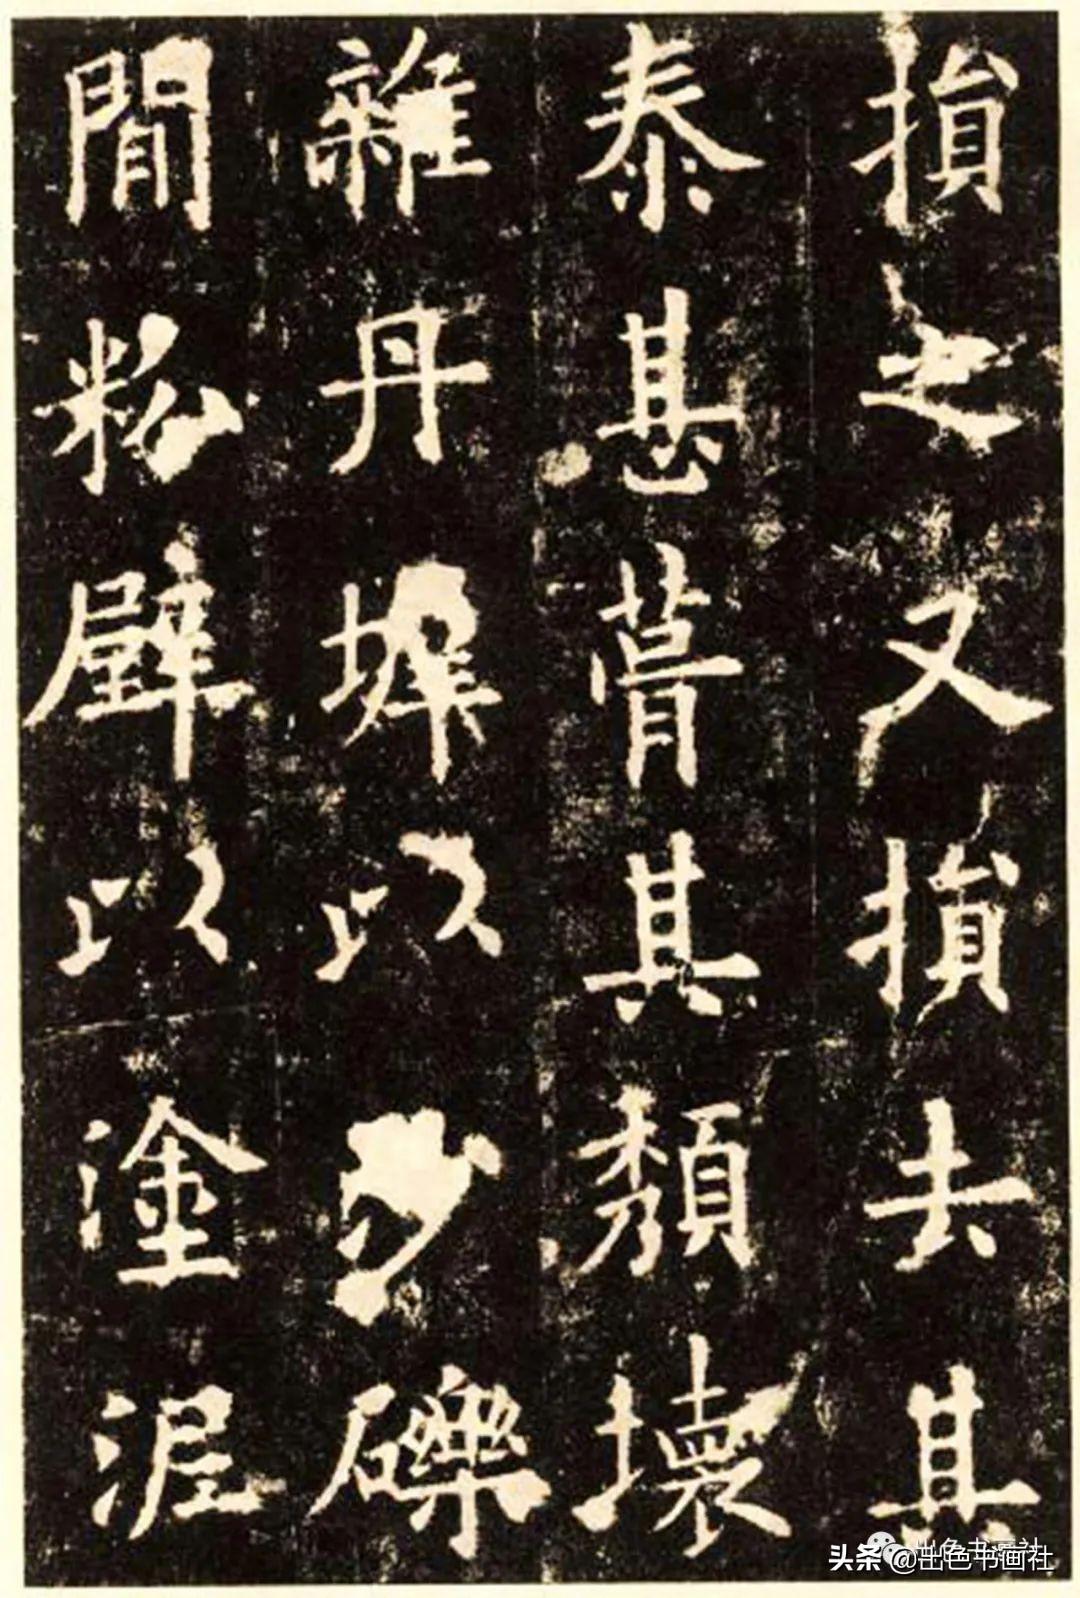 損之又損去其
泰甚葺其頹壞
雜丹墀以沙礫
閒粉壁以塗泥
出色书画社
头条 @出色书画社